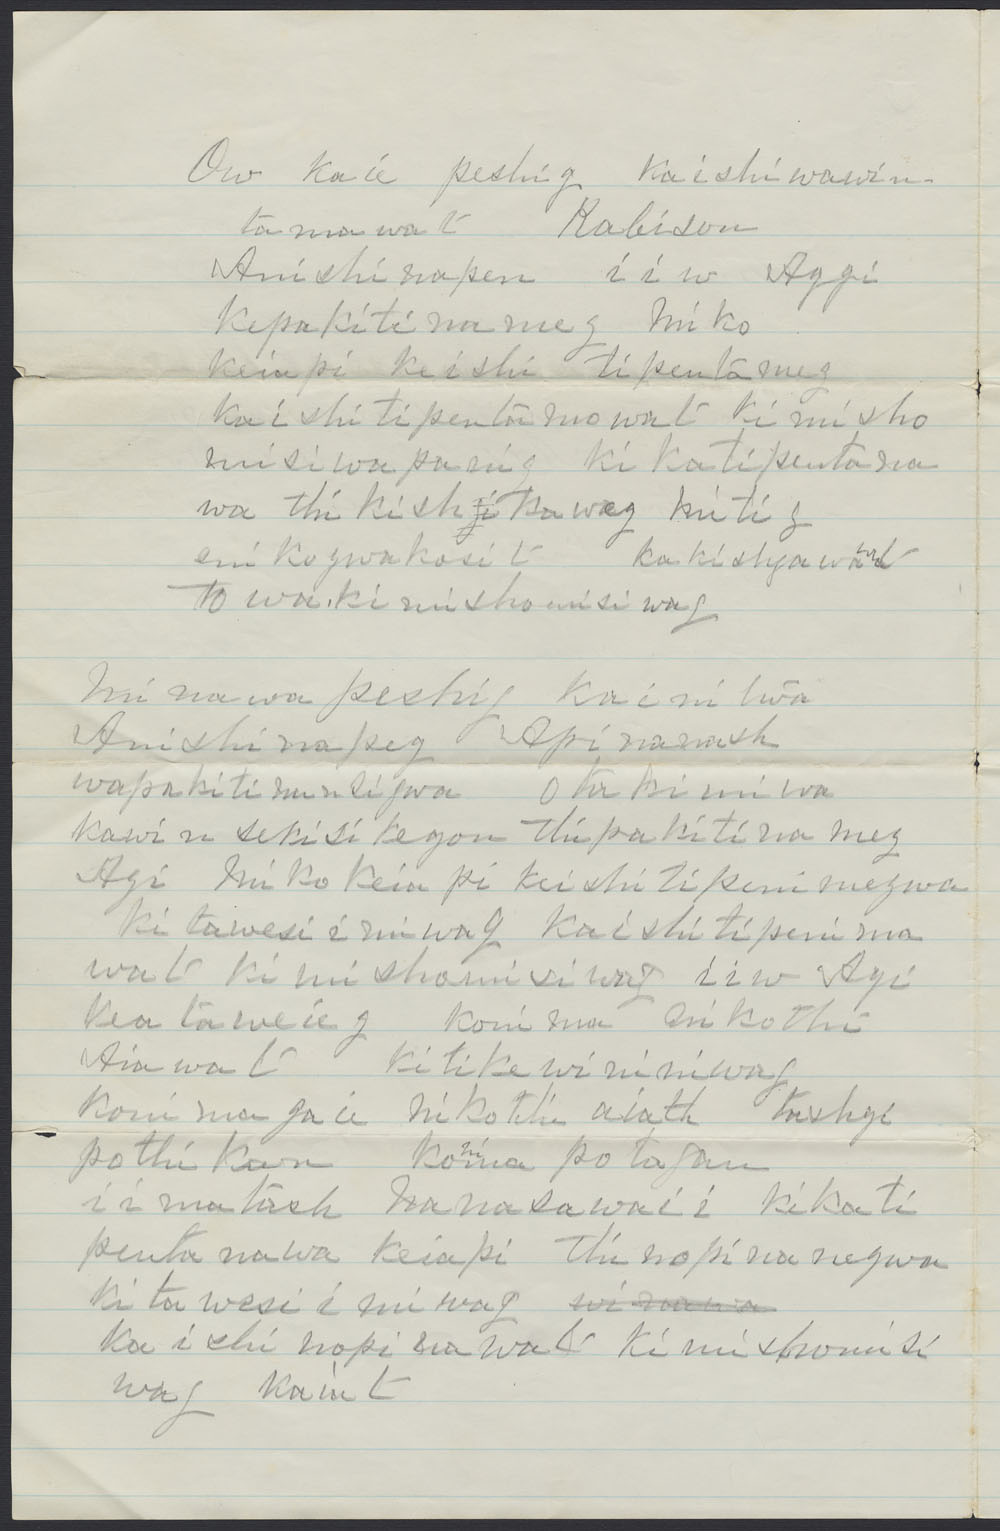 Ow kaie peshig kaishiwawin-
tamawat Rabison
Anishinapen iiw Aggi
kepakitinameg Miko
keiapi keishi tipentāmeg
kaishitipentāmowat kimisho
misiwapanig kikatipentana
wa thikishgikaweg Mitig
enikogwakosit kakishgawāt
to wa.kimishomisiwag

Minawa peshig kainitwā
Anishinapeg Apinanash
wapakitinusigwa otakimiwa
kawin sekisikegon thipakitinameg
Agi Mikokeiapi keishitipenimegwa
kitawesiimiwag kaishitipenima
wat kimishomisiwag iiw Agi
keatāweieg konima nikothi
Aiawat kitikewininiwag
konima gaie nikothi aiath tashgi
pothikan konima potagan
iimatāsh Nanasawaii kikati
pentanawa keiapi thinopinanegwa
kitawesiimiwag
kaishi nopinawat kimishomisi
wag kaiat